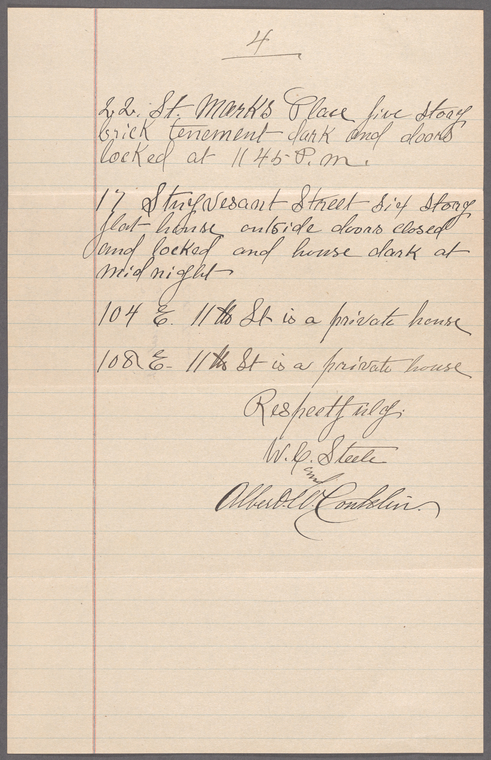 4
22. St. Marks Place five story
brick tenement dark and doors
locked at 11 45 P.m.
17 Stuyvesant Street six story
flat house outside doors closed
and locked and house dark at
midnight
104 E. 11th St is a private house
108 E. 11th St is a private house
Respectfully.
W. C. Steele
and
Albert. W. Conklin.